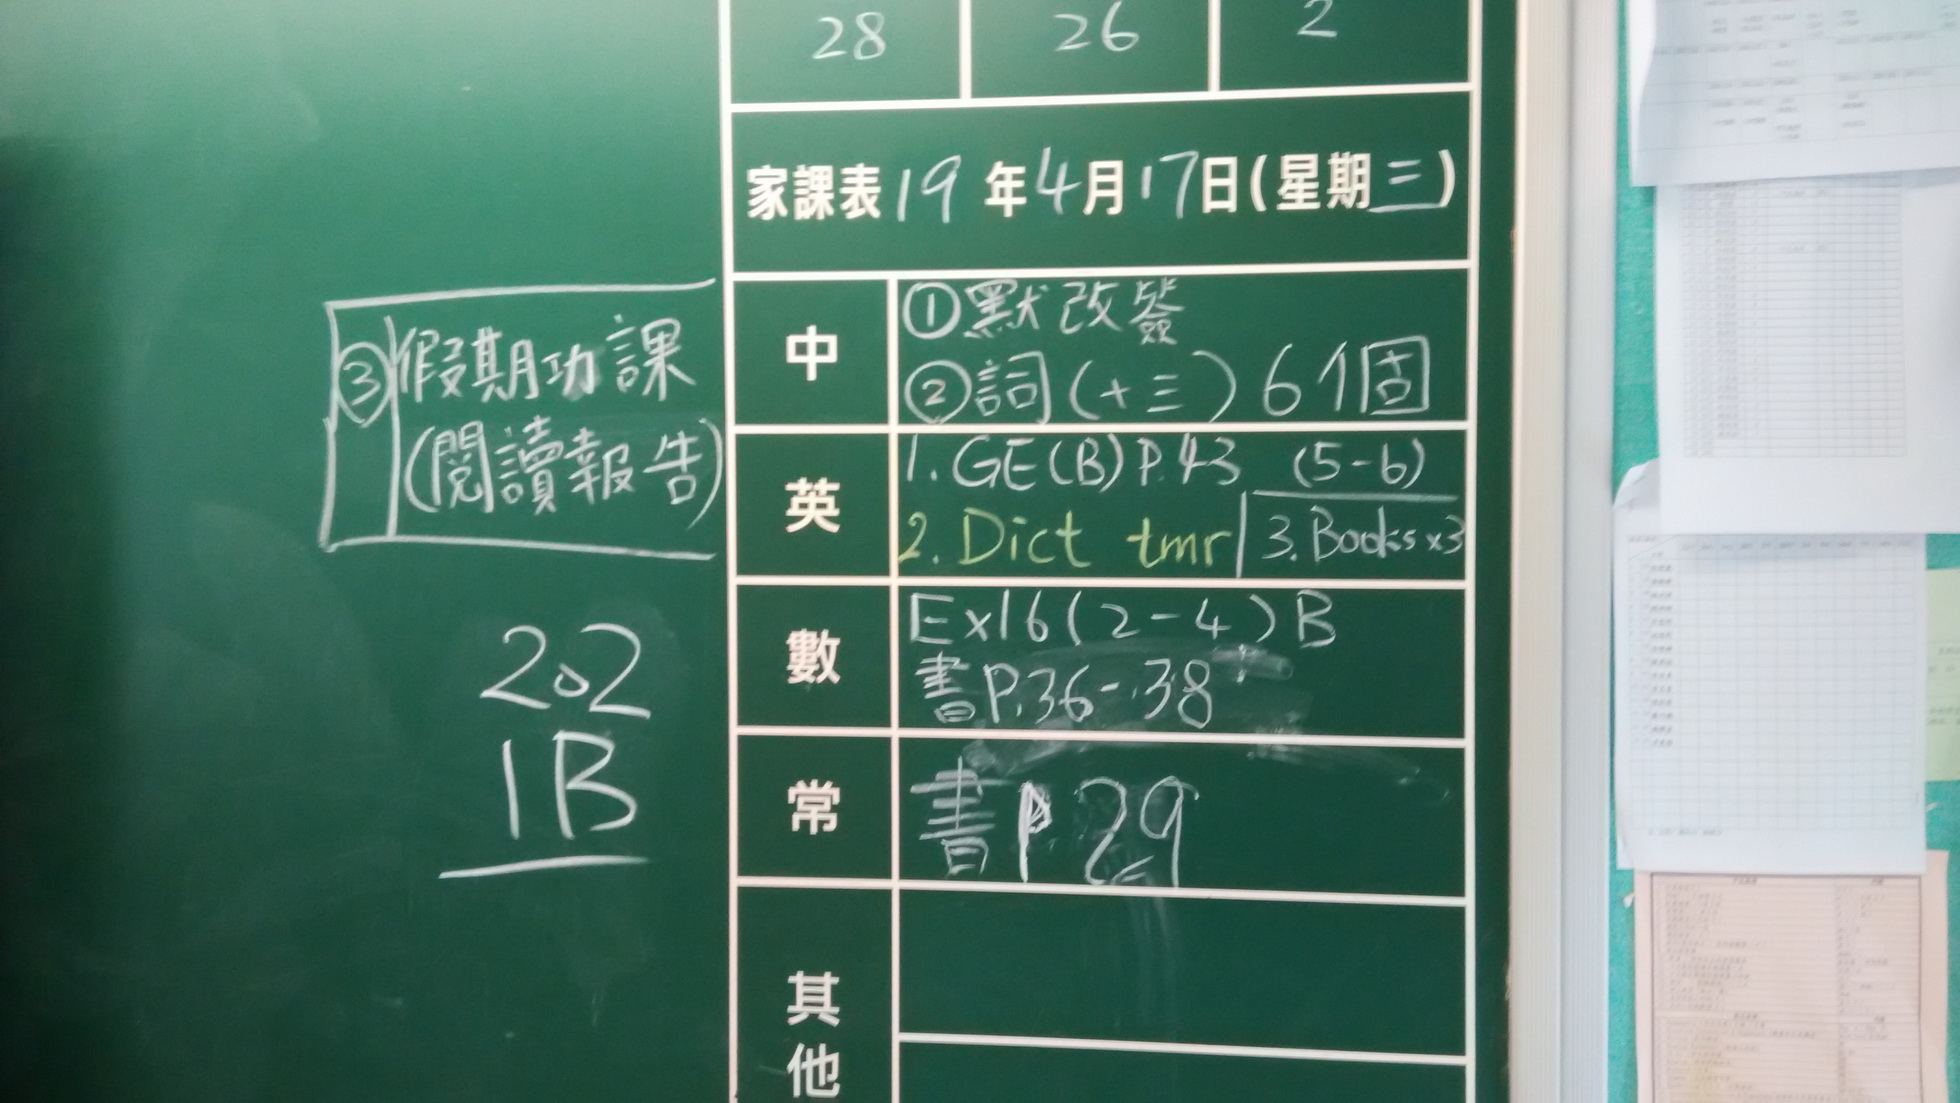 28 26 2
家課表 19年4月17日(星期三)
中
①默改簽
②詞(十三)6個
③假期功課
(閱讀報告)
英
1. GE(B) P.43 (5-6)
2. Dict tmr 3. Books x3
數
Ex16(2-4)B
書P.36-38
常
書P29
其他
202
1B